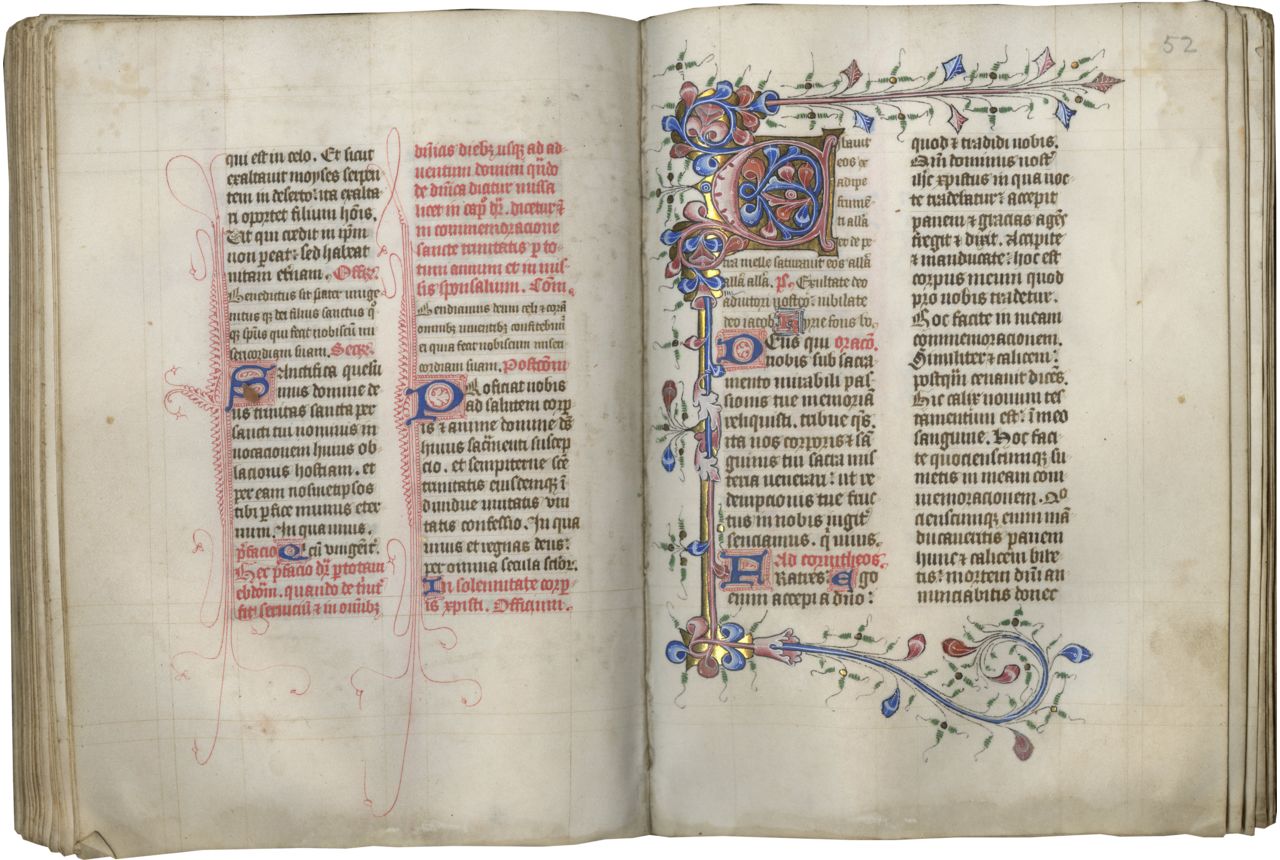 qui est in celo. Et sicut
exaltauit moyses serpen
tem in deserto: ita exalta
ri oportet filium hois.
Ut qui credit in ipm
non peat: sed habeat
uitam eternam. Offm.
Benedictus sit pater unige
nitus qz dei filius sanctus qz
spus quia fecit nobiscu mi
sericordiam suam. Secre.
Sanctifica quesu
mus domine de
us trinitas sancta per
sancti tui nominis in
uocacionem huius ob
lacionis hostiam. et
per eam nosmetipsos
tibi pfice munus eter
num. In qua unus.
pfacio Q cu unigenit.
Hec pfacio dr p totam
ebdom. quando de trinit
fit seruiciu & in omibz
dnicis diebz usqz ad ad
uentum domini qndo
de dnica dicitur missa
licet in capo dr. dicetur &
in commemoracione
sancte trinitatis p to
tum annum et in mis
sis sponsalium. Com.
Bendicimus deum celi & cora
omnibz uiuentibz confitebimur
ei quia fecit nobiscum miseri
cordiam suam. Postcom
Proficiat nobis
ad salutem corp
is & anime domine ds
huius sacmenti suscep
cio. et sempiterne sce
trinitatis eiusdemqz i
diuidue unitatis
confessio. In qua
unus et regnas deus:
per omnia secula sclor.
In solennitate corp
is xpisti. Officium.
52
Cibauit
eos ex
adipe
frume
ti alla
eo de pe
tra melle saturauit eos alla
alla alla. Ps. Exultate deo
adiutori nostro: iubilate
deo iacob. Kyrie fons bo.
Deus qui oraco.
nobis sub sacra
mento mirabili pas
sionis tue memoria
reliquisti. tribue qs.
ita nos corporis & sa
guinis tui sacra mis
teria uenerari: ut re
dempcionis tue fruc
tus in nobis iugit
senciamus. q uiuis.
Ad corintheos.
Fratres. Ego
enim accepi a dno:
quod & tradidi uobis.
Qm dominus nost
ihc xpistus in qua noc
te tradebatur: accepit
panem & gracias ages
fregit & dixit. Accipite
& manducate: hoc est
corpus meum quod
pro uobis tradetur.
Hoc facite in meam
commemoracionem.
Similiter & calicem:
postqm cenauit dices.
Hic calix nouum tes
tamentum est: i meo
sanguine. Hoc faci
te quocienscumqz su
metis in meam com
memoracionem. Quo
cienscumqz enim man
ducaueritis panem
hunc & calicem bibe
tis: mortem dni an
nunciabitis donec